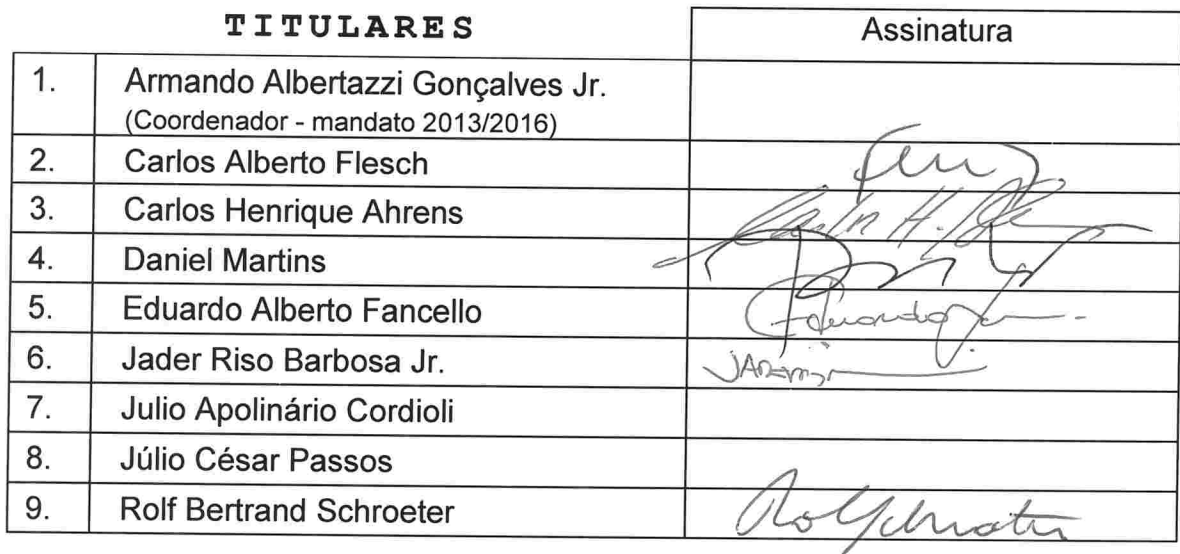 TITULARES Assinatura
1. Armando Albertazzi Gonçalves Jr.
(Coordenador - mandato 2013/2016)
2. Carlos Alberto Flesch
3. Carlos Henrique Ahrens
4. Daniel Martins
5. Eduardo Alberto Fancello
6. Jader Riso Barbosa Jr.
7. Julio Apolinário Cordioli
8. Júlio César Passos
9. Rolf Bertrand Schroeter